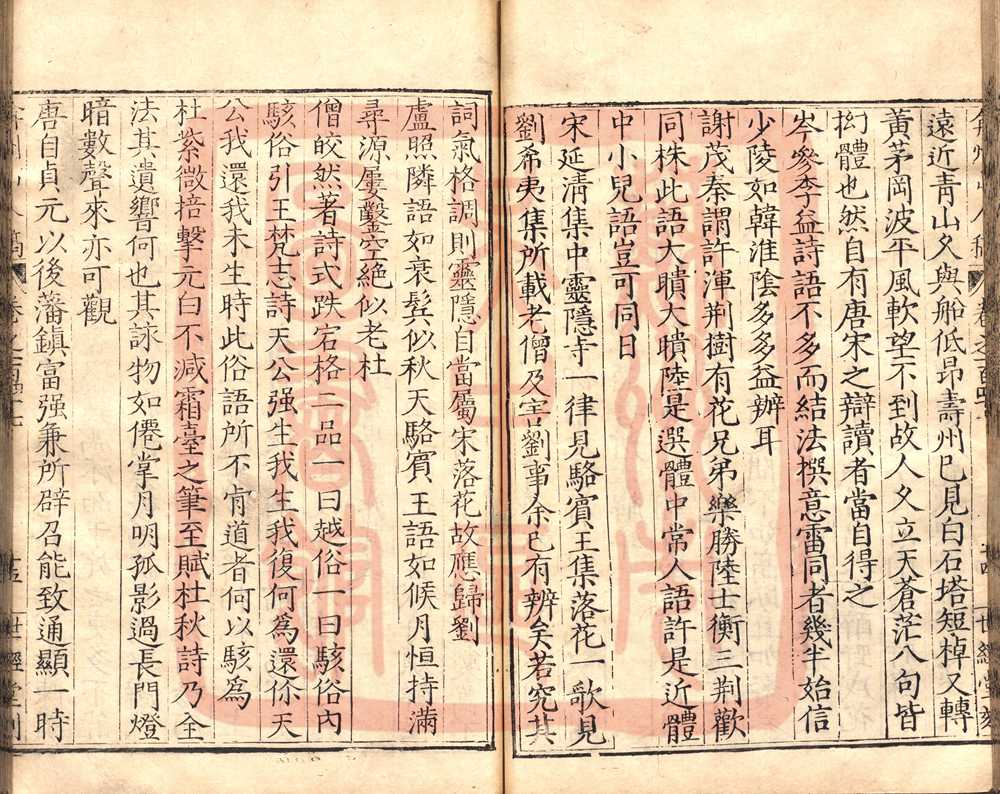 遠近青山久與船低昂壽州已見白石塔短棹又轉
黃茅岡波平風軟望不到故人久立天蒼茫八句皆
拗體也然自有唐宋之辯讀者當自得之
岑參李益詩語不多而結法撰意雷同者幾半始信
少陵如韓淮陰多多益辦耳
謝茂秦謂許渾荆樹有花兄弟樂勝陸士衡三荆歡
同株此語大聵大聵陸是選體中常人語許是近體
中小兒語豈可同日
宋延清集中靈隱寺一律見駱賓王集落花一歌見
劉希夷集所載老僧及害劉事余已有辨矣若究其
詞氣格調則靈隱自當屬宋落花故應歸劉
盧照隣語如衰鬂似秋天駱賓王語如候月恒持滿
尋源屢鑿空絶似老杜
僧皎然著詩式跌宕格二品一曰越俗一曰駭俗内
駭俗引王梵志詩天公强生我生我復何為還你天
公我還我未生時此俗語所不肯道者何以駭為
杜紫微掊擊元白不減霜臺之筆至賦杜秋詩乃全
法其遺響何也其詠物如僊掌月明孤影過長門燈
暗數聲來亦可觀
唐自貞元以後藩鎮富强兼所辟召能致通顯一時
世經堂刻